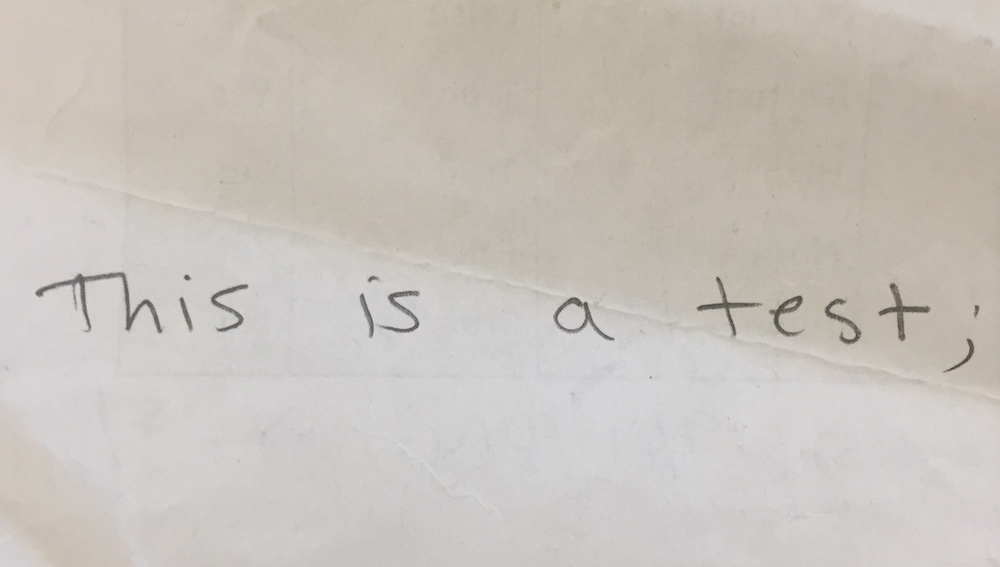 This is a test;